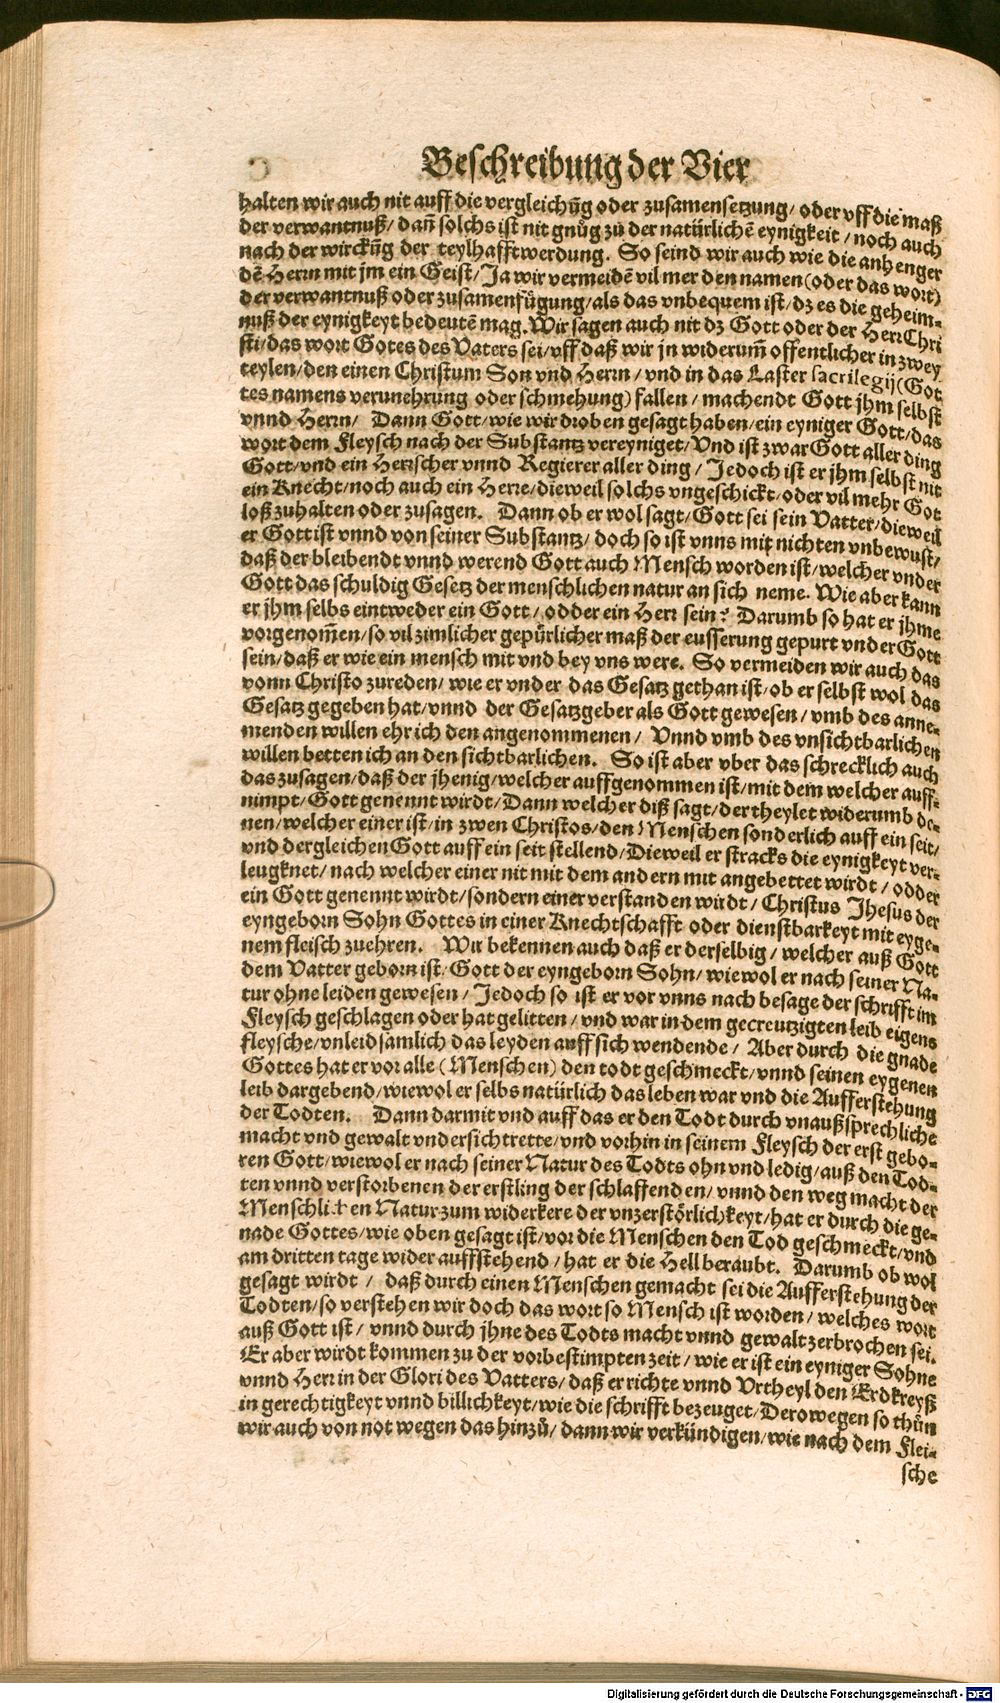 Beschreibung der Vier
halten wir auch nit auff die vergleichũg oder zusamensetzung/ oder vff die maß
der verwantnuß/ dañ solchs ist nit gnůg zů der natürlichẽ eynigkeit / noch auch
nach der wirckũg der teylhafftwerdung. So seind wir auch wie die anhenger
dẽ Herrn mit jm ein Geist/ Ja wir vermeidẽ vil mer den namen (oder das wort)
der verwantnuß oder zusamenfügung/ als das vnbequem ist/ dz es die geheim-
nuß der eynigkeyt bedeutẽ mag. Wir sagen auch nit dz Gott oder der Herr Chri
sti/ das wort Gotes des Vaters sei/ vff daß wir jn widerum̃ offentlicher in zwey
teylen/ den einen Christum Son vnd Herrn / vnd in das Laster sacrilegij (Got
tes namens verunehrung oder schmehung) fallen / machendt Gott jhm selbst
vnnd Herrn/ Dann Gott/ wie wir droben gesagt haben/ ein eyniger Gott/ das
wort dem Fleysch nach der Substantz vereyniget/ Vnd ist zwar Gott aller ding
Gott/ vnd ein Herrscher vnnd Regierer aller ding / Jedoch ist er jhm selbst nit
ein Knecht/ noch auch ein Herre/ dieweil solchs vngeschickt/ oder vil mehr Got
loß zuhalten oder zusagen. Dann ob er wol sagt/ Gott sei sein Vatter/ dieweil
er Gott ist vnnd von seiner Substantz/ doch so ist vnns mit nichten vnbewust/
daß der bleibendt vnnd werend Gott auch Mensch worden ist/ welcher vnder
Gott das schuldig Gesetz der menschlichen natur an sich neme. Wie aber kann
er jhm selbs eintweder ein Gott / odder ein Herr sein? Darumb so hat er jhme
vorgenom̃en/ so vil zimlicher gepürlicher maß der eusserung gepurt vnder Gott
sein/ daß er wie ein mensch mit vnd bey vns were. So vermeiden wir auch das
vonn Christo zureden/ wie er vnder das Gesatz gethan ist/ ob er selbst wol das
Gesatz gegeben hat/ vnnd der Gesatzgeber als Gott gewesen / vmb des anne-
menden willen ehr ich den angenommenen / Vnnd vmb des vnsichtbarlichen
willen betten ich an den sichtbarlichen. So ist aber vber das schrecklich auch
das zusagen/ daß der jhenig/ welcher auffgenommen ist/ mit dem welcher auff-
nimpt/ Gott genennt wirdt/ Dann welcher diß sagt/ der theylet widerumb de-
nen/ welcher einer ist/ in zwen Christos/ den Menschen sonderlich auff ein seit/
vnd dergleichen Gott auff ein seit stellend/ Dieweil er stracks die eynigkeyt ver-
leugknet/ nach welcher einer nit mit dem andern mit angebettet wirdt / odder
ein Gott genennt wirdt/ sondern einer verstanden wirdt/ Christus Jhesus der
eyngeborn Sohn Gottes in einer Knechtschafft oder dienstbarkeyt mit eyge-
nem fleisch zuehren. Wir bekennen auch daß er derselbig / welcher auß Gott
dem Vatter geborn ist/ Gott der eyngeborn Sohn/ wiewol er nach seiner Na-
tur ohne leiden gewesen / Jedoch so ist er vor vnns nach besage der schrifft im
Fleysch geschlagen oder hat gelitten / vnd war in dem gecreutzigten leib eigens
fleysche/ vnleidsamlich das leyden auff sich wendende / Aber durch die gnade
Gottes hat er vor alle (Menschen) den todt geschmeckt/ vnnd seinen eygenen
leib dargebend/ wiewol er selbs natürlich das leben war vnd die Aufferstehung
der Todten. Dann darmit vnd auff das er den Todt durch vnaußsprechliche
macht vnd gewalt vndersichtrette/ vnd vorhin in seinem Fleysch der erst gebo-
ren Gott/ wiewol er nach seiner Natur des Todts ohn vnd ledig/ auß den Tod-
ten vnnd verstorbenen der erstling der schlaffenden/ vnnd den weg macht der
Menschlichen Natur zum widerkere der vnzerstörlichkeyt/ hat er durch die ge-
nade Gottes/ wie oben gesagt ist/ vor die Menschen den Tod geschmeckt/ vnd
am dritten tage wider auffstehend / hat er die Hell beraubt. Darumb ob wol
gesagt wirdt / daß durch einen Menschen gemacht sei die Aufferstehung der
Todten/ so verstehen wir doch das wort so Mensch ist worden / welches wort
auß Gott ist / vnnd durch jhne des Todts macht vnnd gewalt zerbrochen sei.
Er aber wirdt kommen zu der vorbestimpten zeit / wie er ist ein eyniger Sohne
vnnd Herr in der Glori des Vatters/ daß er richte vnnd Vrtheyl den Erdkreyß
in gerechtigkeyt vnnd billichkeyt/ wie die schrifft bezeuget/ Derowegen so thůn
wir auch von not wegen das hinzů/ dann wir verkündigen/ wie nach dem Flei-
sche
Digitalisierung gefördert durch die Deutsche Forschungsgemeinschaft - DFG